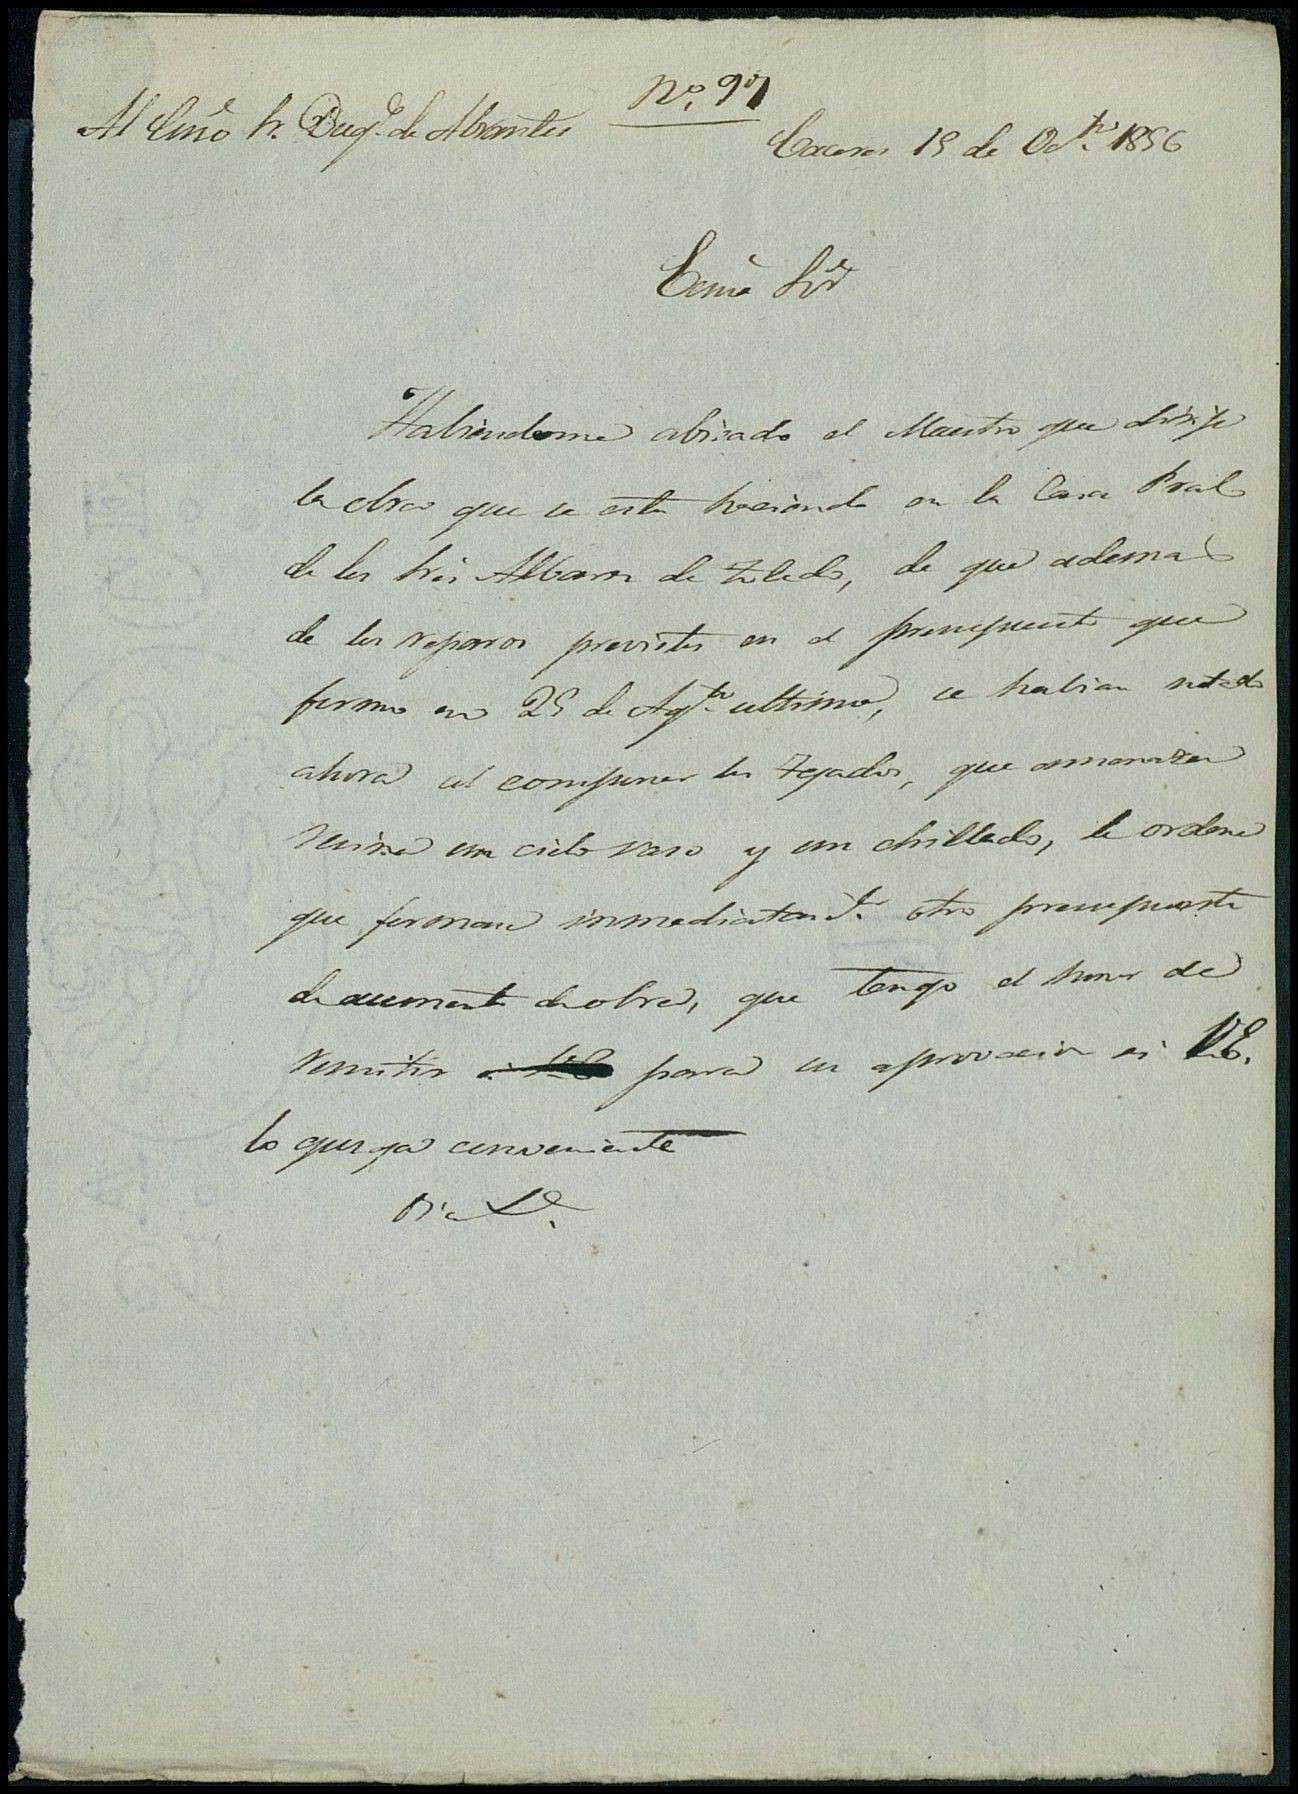 Nº. 97
Al Exmo Sr. Duq.e de Abrantes
Caceres 19 de Oct.e 1856
Exmo Sor
Habiendome abisado el Maestro que dirije
la obra que se esta haciendo en la Casa Pral
de los Sres Albares de Toledo, de que ademas
de los reparos previstos en el presupuesto que
formo en 25 de Ag.to ultimo, se habian notado
ahora al componer los tejados, que amenazan
ruina un cielo raso y un chillado, le ordene
que formase inmediatam.te otro presupuesto
de aumento de obra, que tengo el honor de
remitir para su aprovacion si V.E.
lo quzga conveniente
Di.s &.